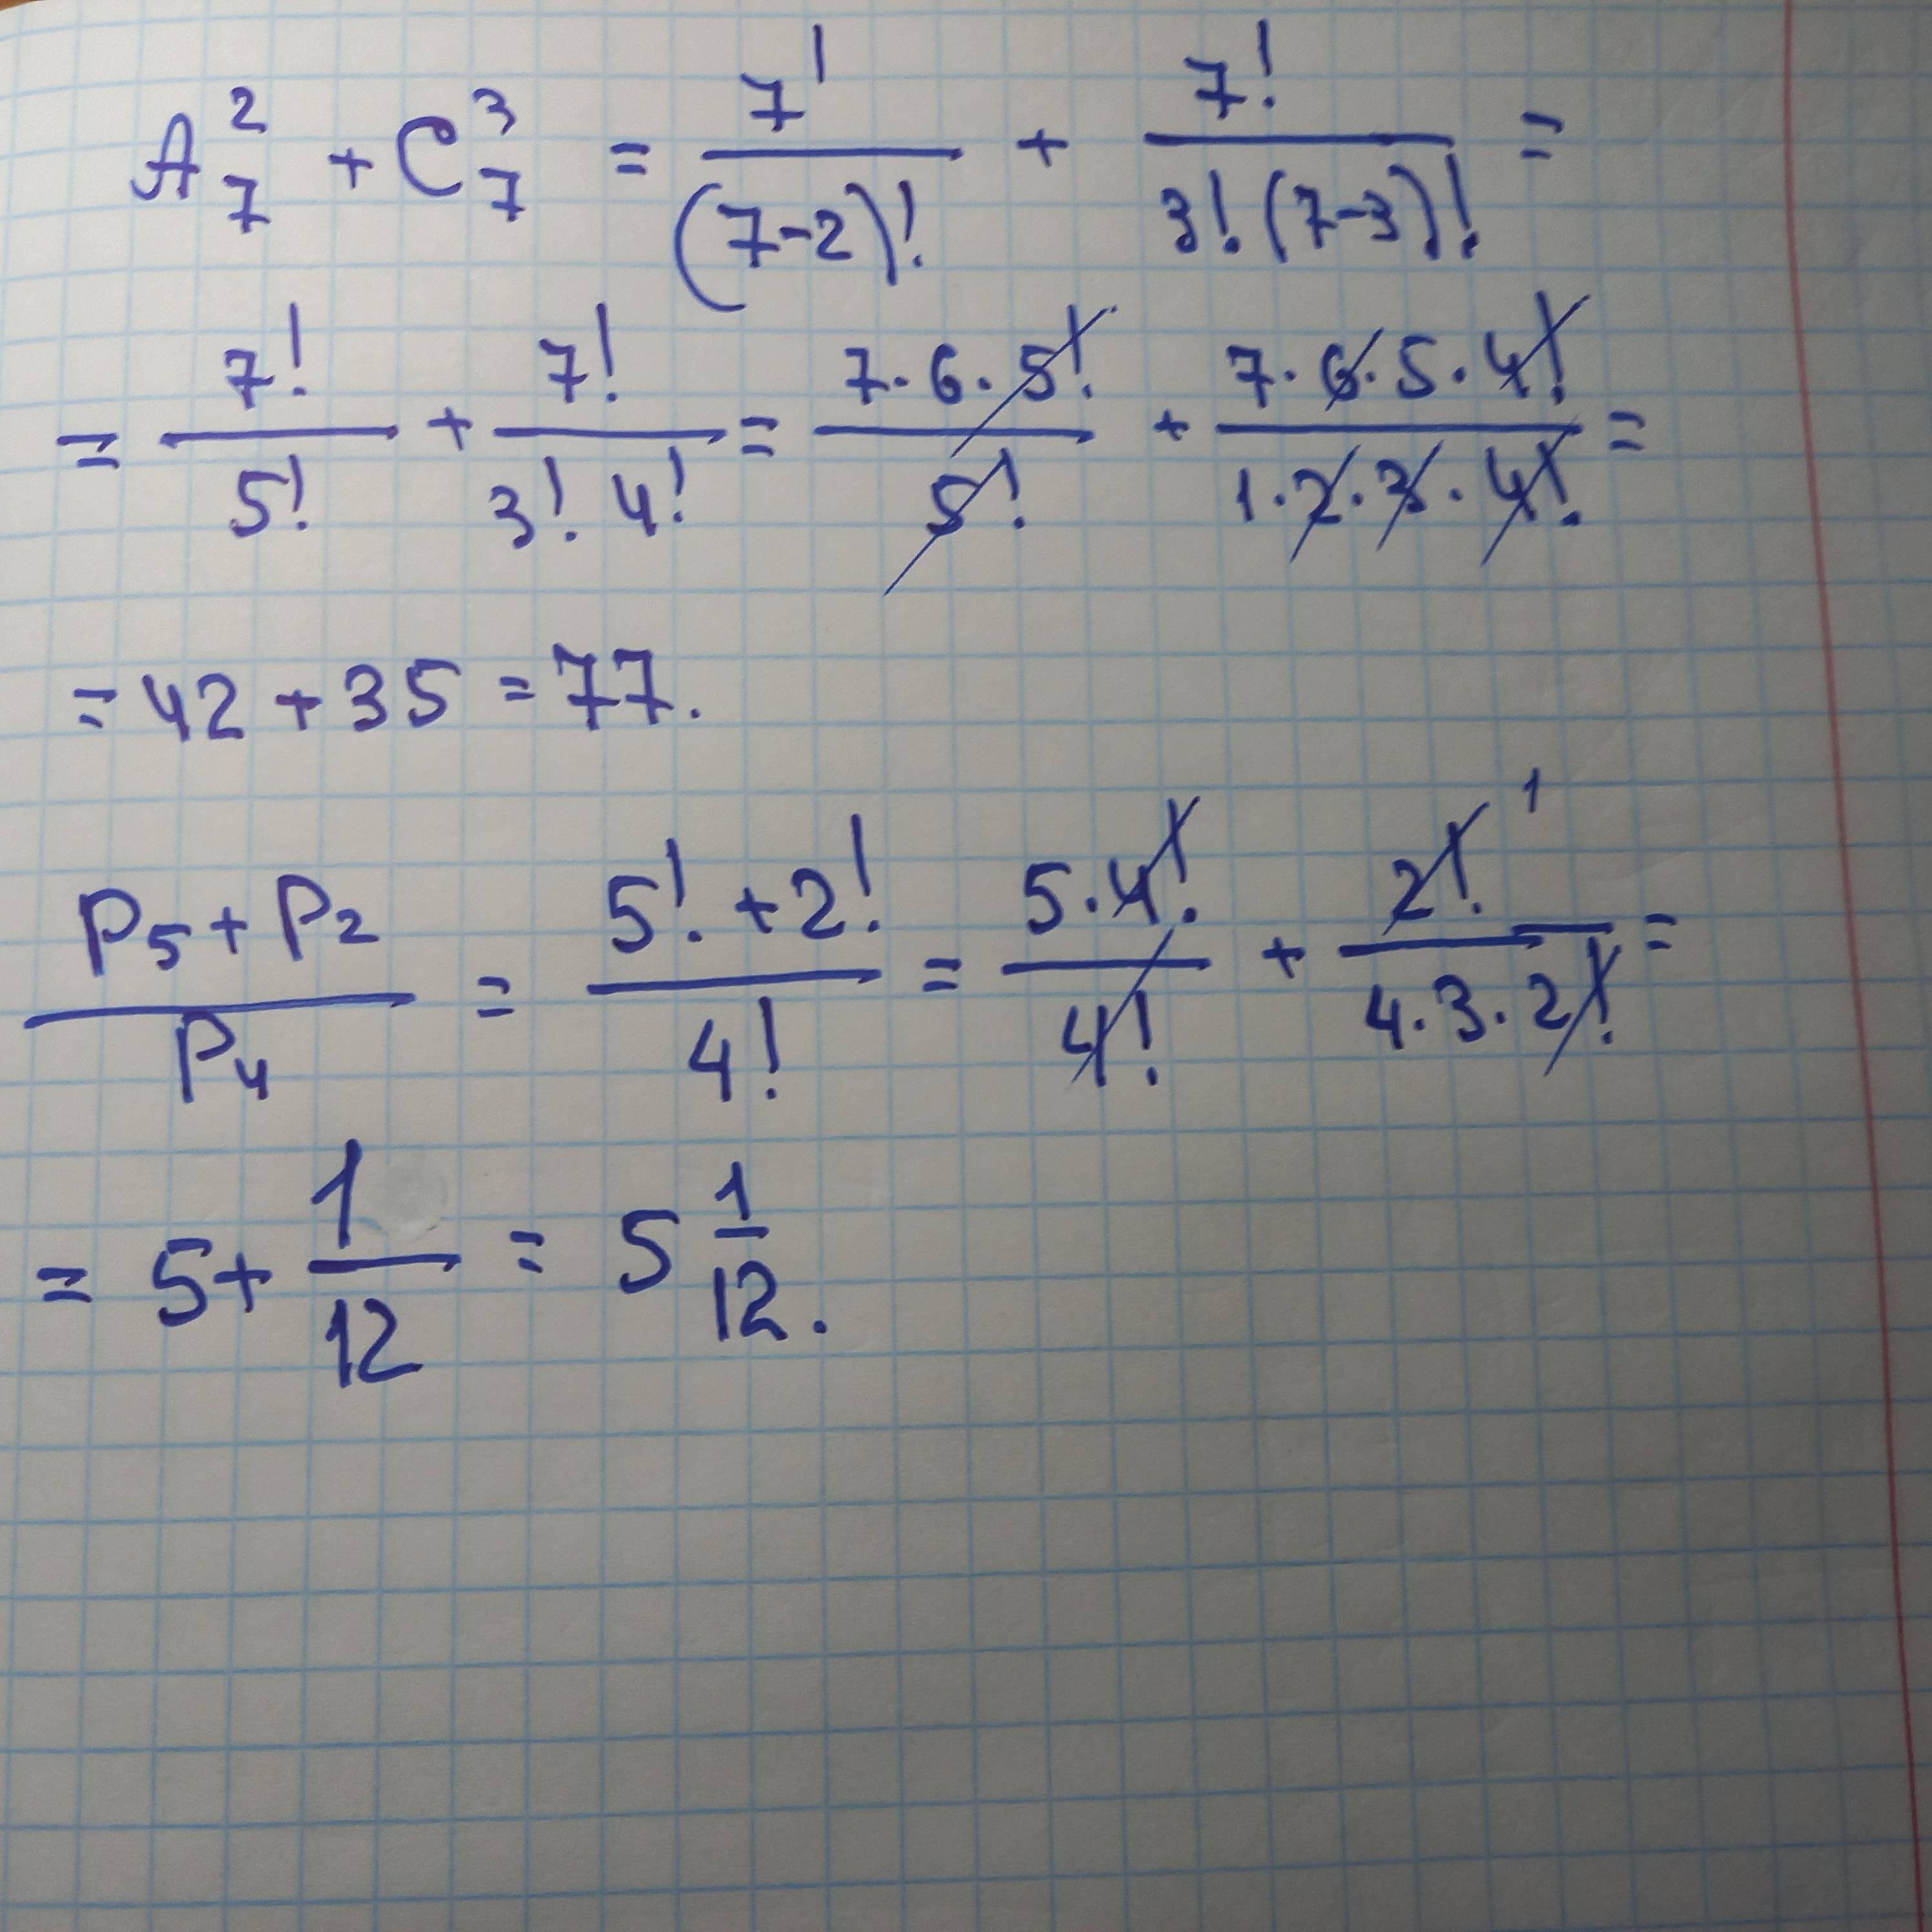 A₇² + C₇³ = 7!/(7-2)! + 7!/(3!(7-3)!) =
= 7!/5! + 7!/(3! 4!) = (7·6·5!)/5! + (7·6·5·4!)/(1·2·3·4!) =
= 42 + 35 = 77.
(P₅ + P₂)/P₄ = (5! + 2!)/4! = (5·4!)/4! + 2! 1/(4·3·2!) =
= 5 + 1/12 = 5 1/12.